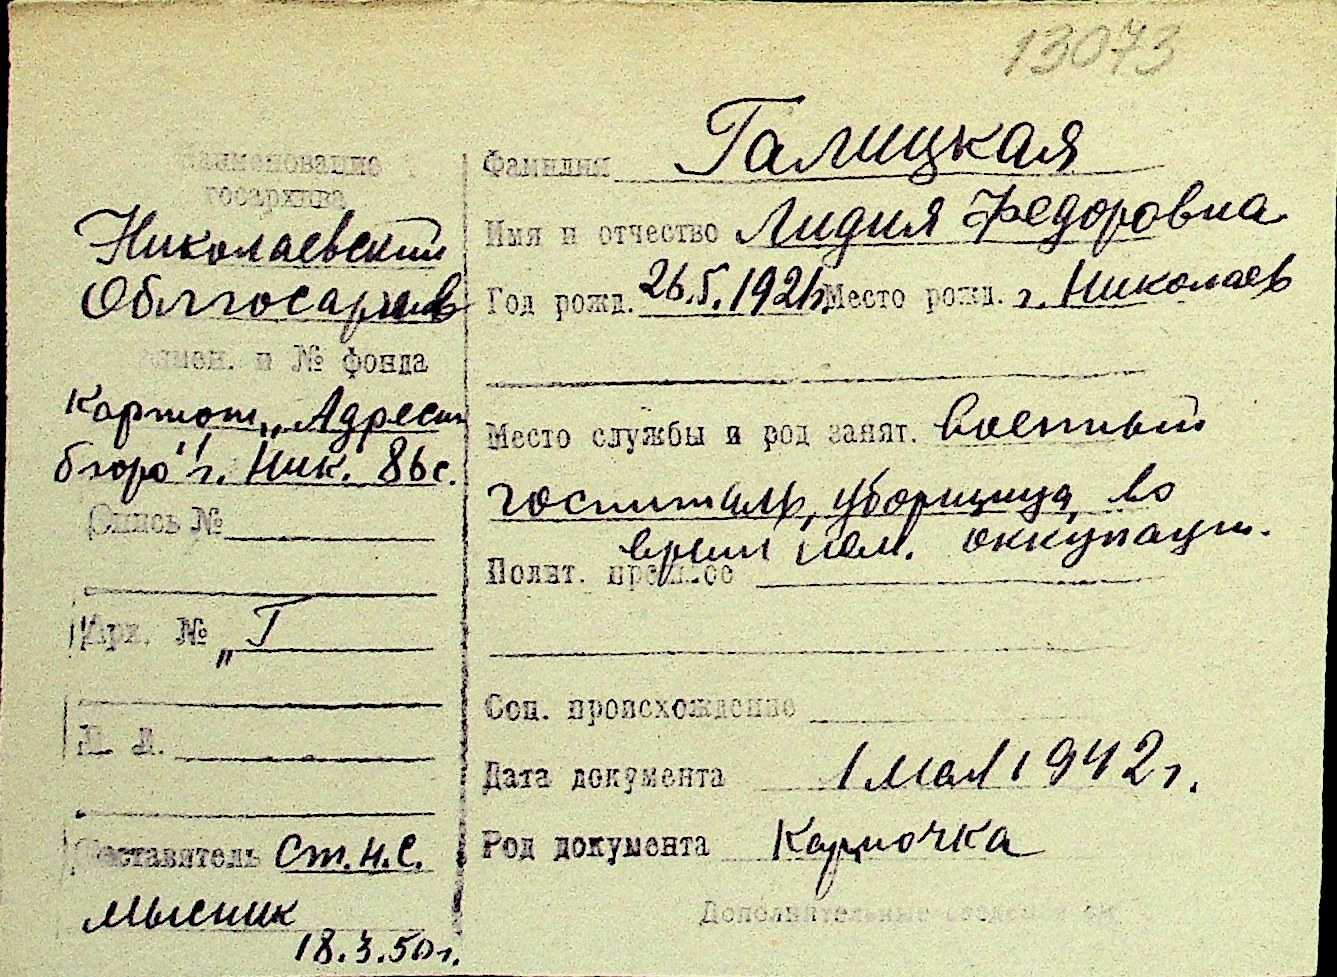 13073
Наименование
госархива
Николаевский
Облгосархив
Наимен. и № фонда
Картот. „Адресн.
бюро" г. Ник. 86с.
Опись №
Арх. № „Г
№ л.
Составитель Ст.н.с.
Мысник
18.3.50г.
Фамилия Галицкая
Имя и отчество Лидия Федоровна
Год рожд. 26.5.1921г. Место рожд. г. Николаев
Место службы и род занят. Военный
госпиталь, уборщица, во
время нем. оккупации.
Полит. прошлое
Соц. происхождение
Дата документа 1 мая 1942г.
Род документа Карточка
Дополнительные сведения